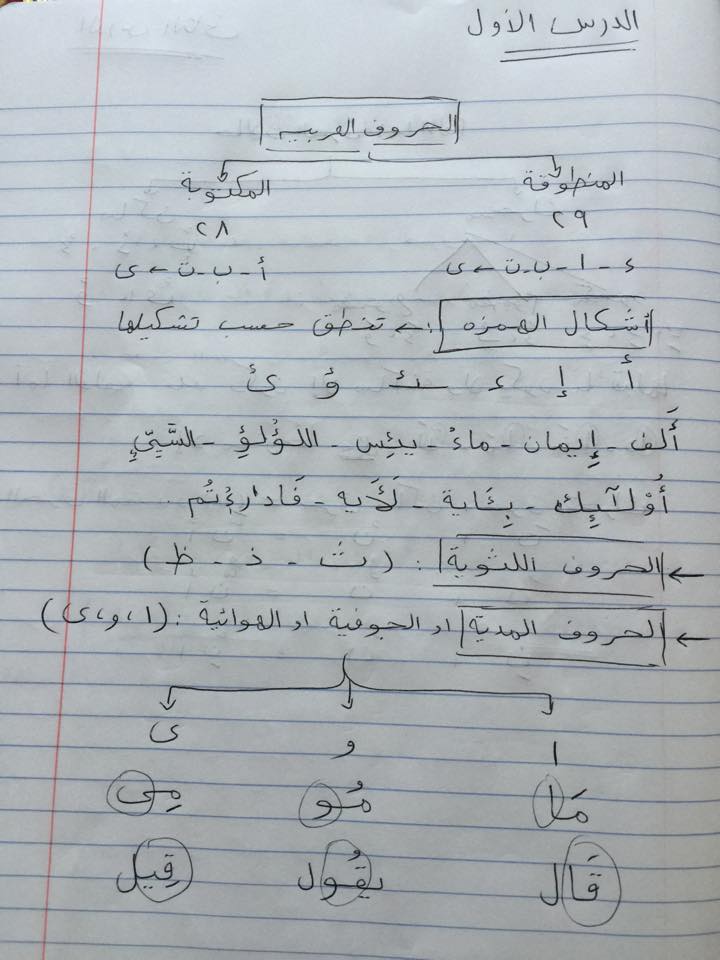 الدرس الأول
الحروف العربيه
المنطوقة المكتوبة
٢٩ ٢٨
ء - ا - ب - ت ← ى أ - ب - ت ← ى
أشكال الهمزه :← تنطق حسب تشكيلها
أ إ ء ئـ ؤ ئ
أَلف - إِيمان - ماءً - يئِس - اللؤْلؤِ - السَّيِّئِ
أُوْلآئِك - بِئَاية - لَأَيه - فَادارءْتُم .
← الحروف اللثوية : ( ث - ذ - ظ )
← الحروف المدية او الجوفية او الهوائية : ( ا ، و ، ى )
ا و ى
مَا مُو مِى
قَال يقُول قِيل